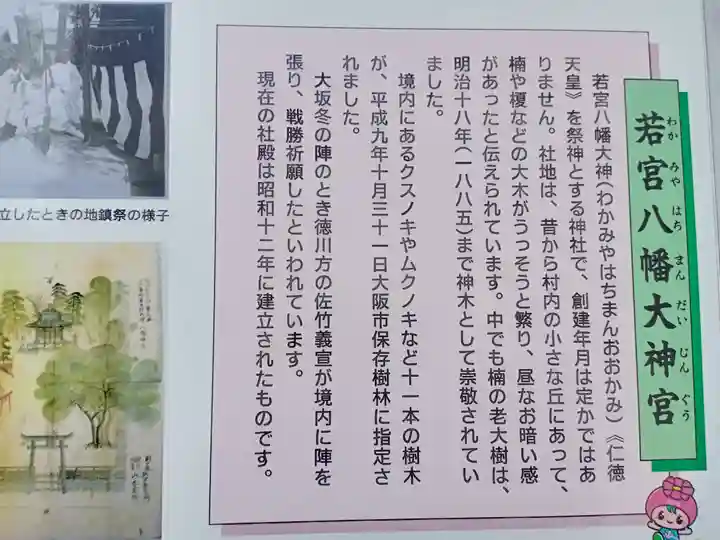 若宮八幡大神宮
わか みや はち まん だい じん ぐう
若宮八幡大神(わかみやはちまんおおかみ)《仁徳
天皇》を祭神とする神社で、創建年月は定かではあ
りません。社地は、昔から村内の小さな丘にあって、
楠や榎などの大木がうっそうと繁り、昼なお暗い感
があったと伝えられています。中でも楠の老大樹は、
明治十八年(一八八五)まで神木として崇敬されてい
ました。
境内にあるクスノキやムクノキなど十一本の樹木
が、平成九年十月三十一日大阪市保存樹林に指定さ
れました。
大坂冬の陣のとき徳川方の佐竹義宣が境内に陣を
張り、戦勝祈願したといわれています。
現在の社殿は昭和十二年に建立されたものです。
立したときの地鎮祭の様子